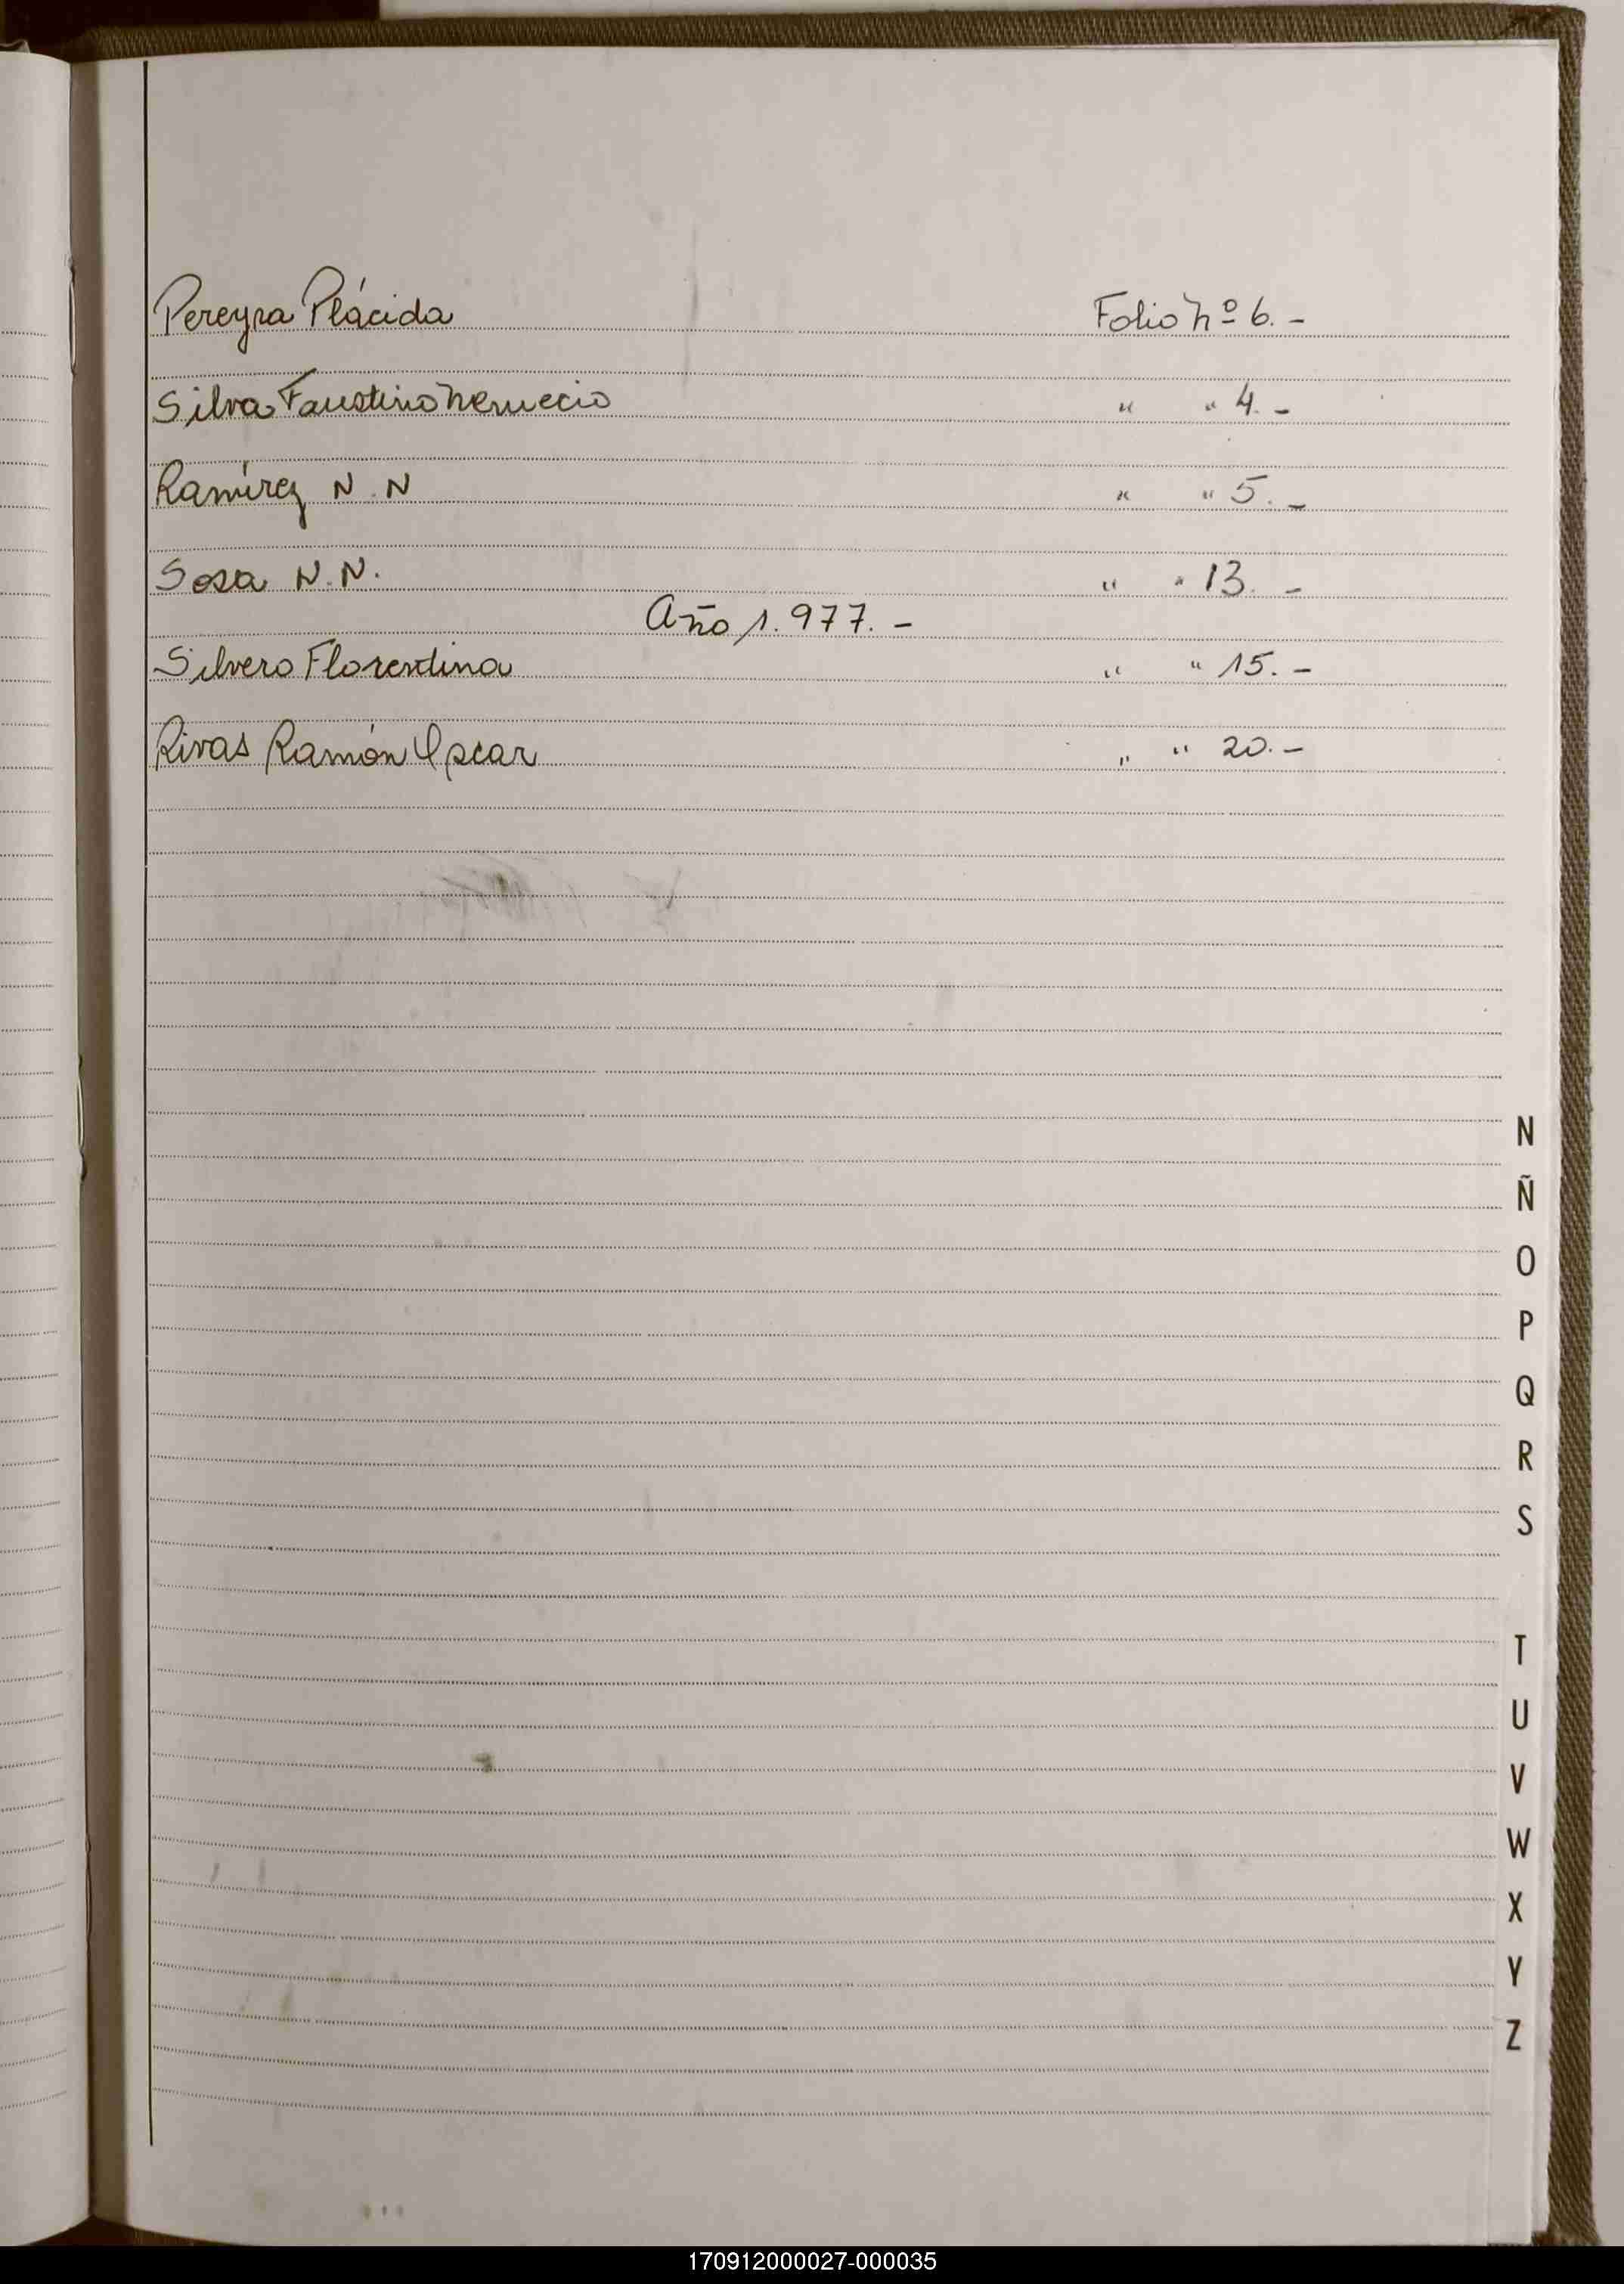 Pereyra Plácida Folio Nº 6. -
Silva Faustino Nemecio " " 4. -
Ramírez N. N " " 5. -
Sosa N. N. " " 13. -
Año 1.977. -
Silvero Florentina " " 15. -
Rivas Ramón Oscar " " 20. -
N
Ñ
O
P
Q
R
S
T
U
V
W
X
Y
Z
170912000027-000035